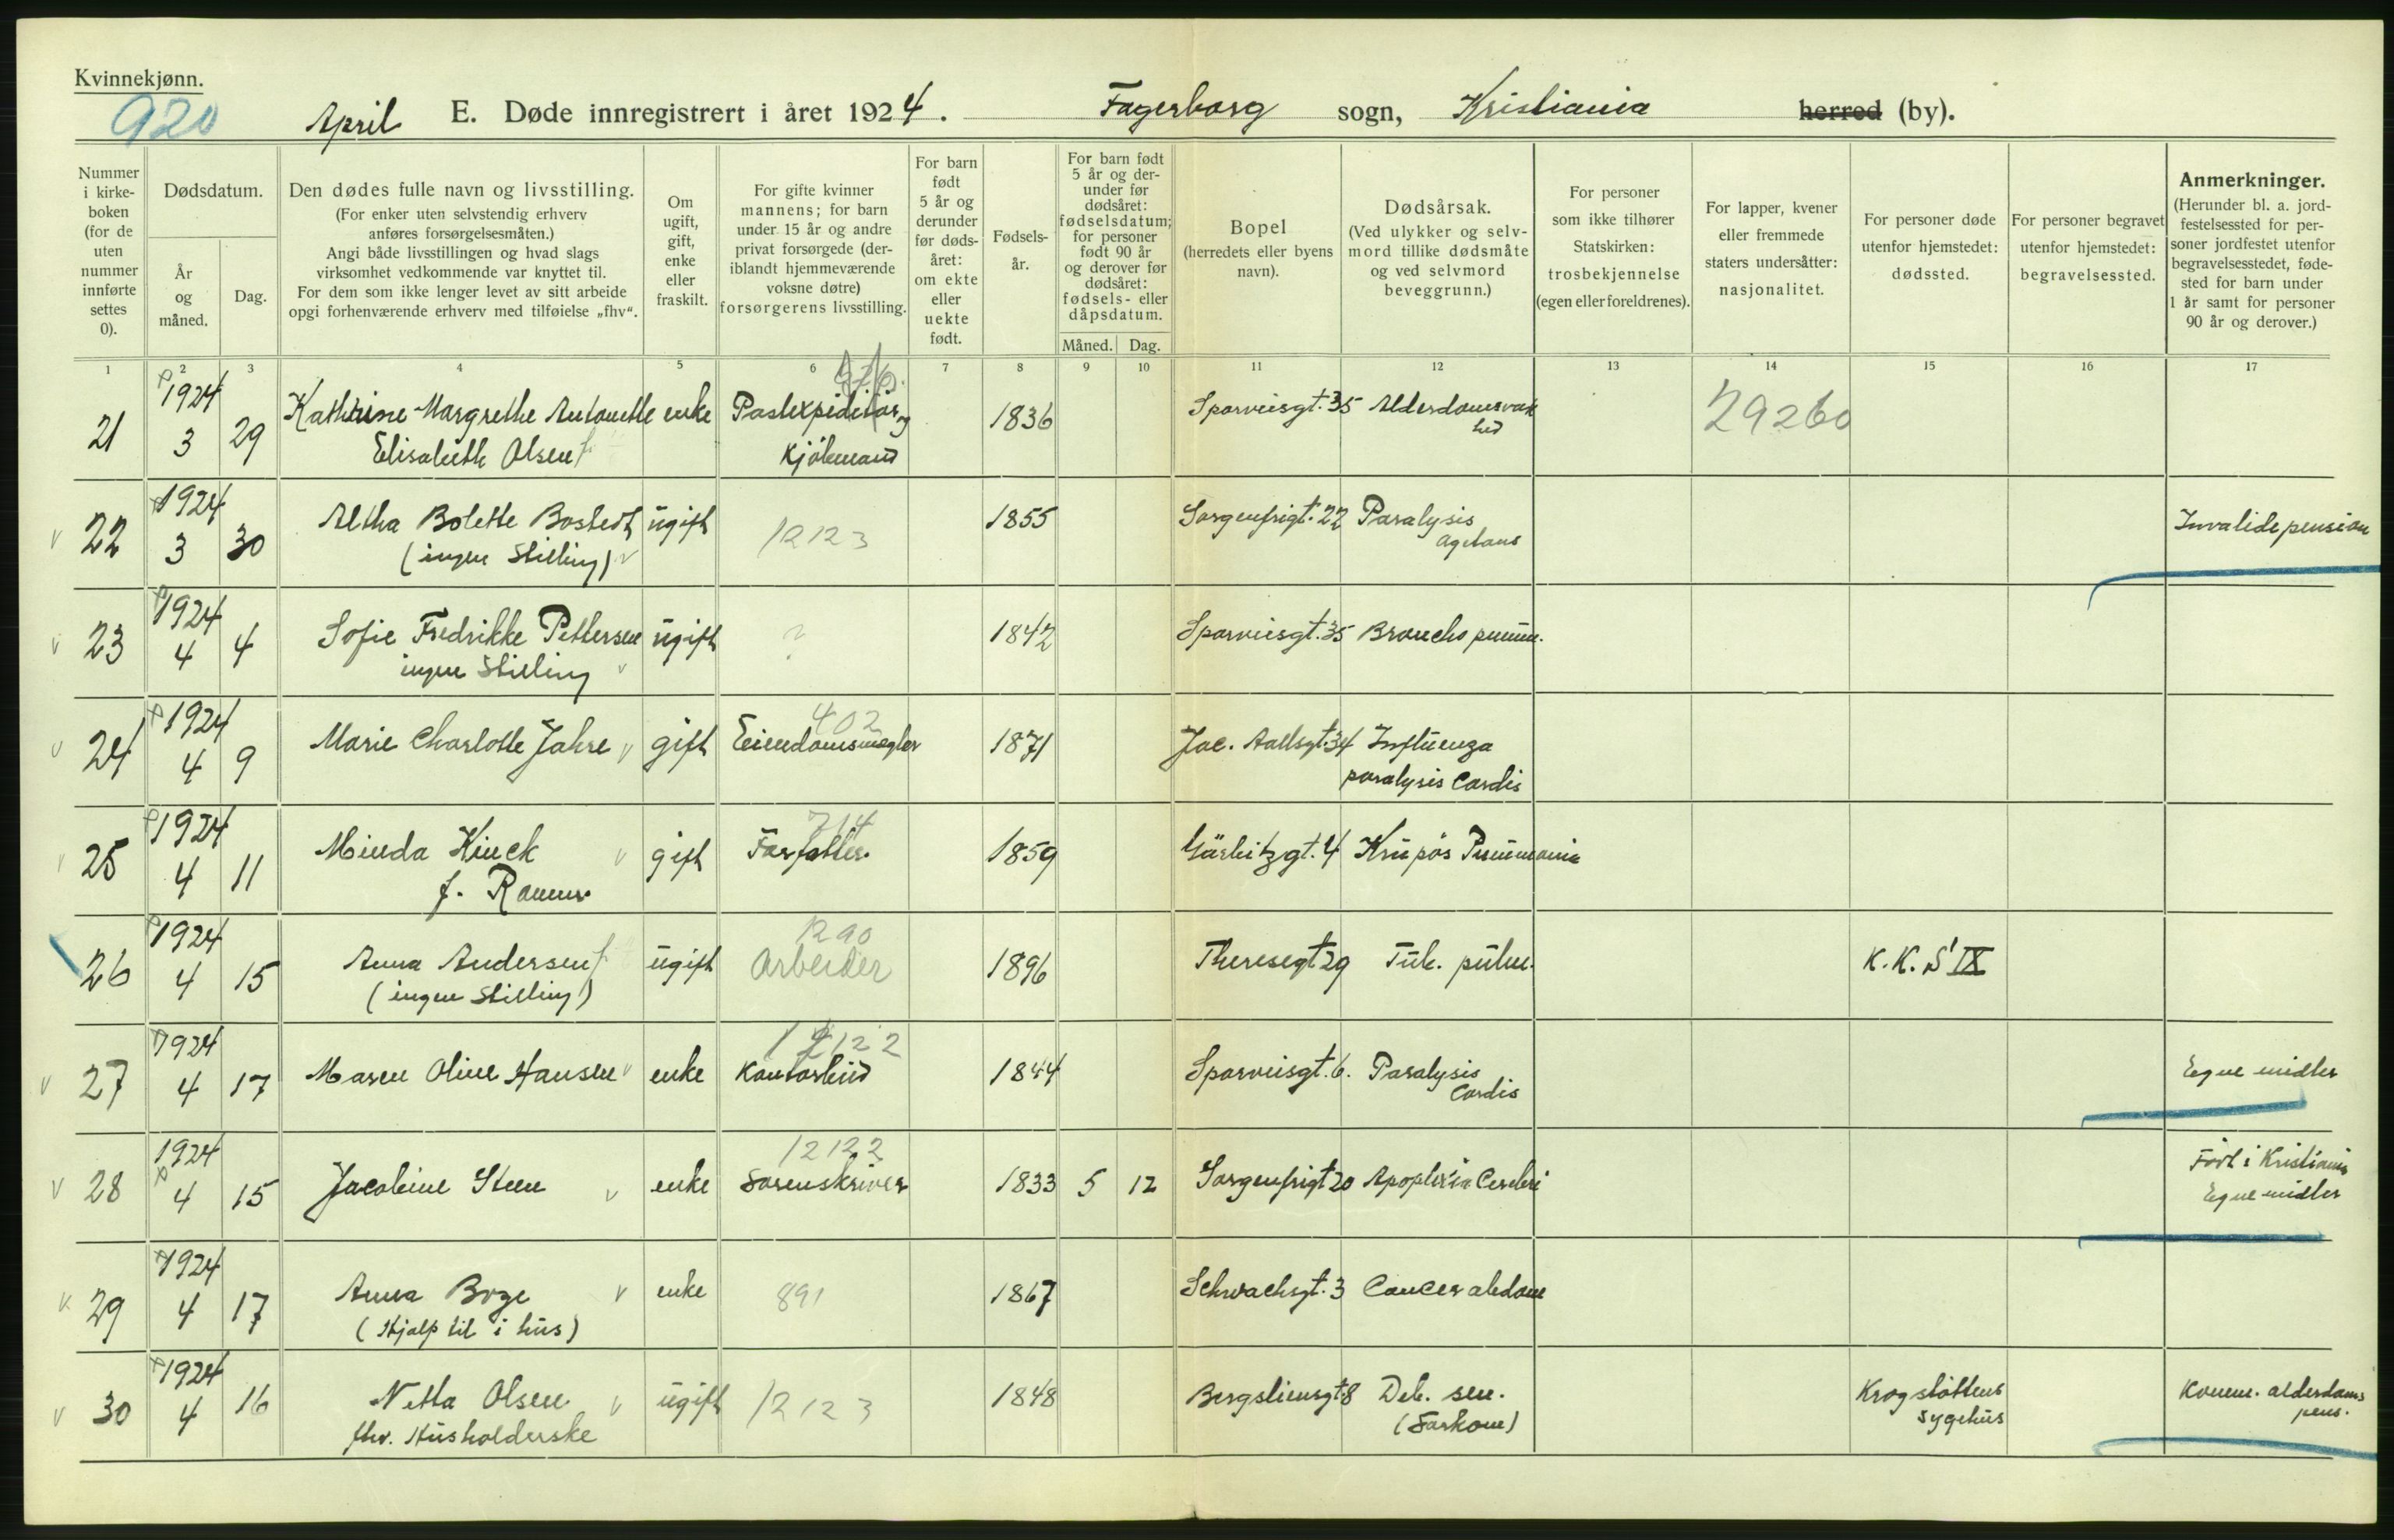 Kvinnekjønn.
920
April E. Døde innregistrert i året 1924. Fagerborg sogn, Kristiania herred (by).
Nummer i kirke-boken (for de uten nummer innførte settes 0).
Dødsdatum.
År og måned.
Dag.
Den dødes fulle navn og livsstilling.
(For enker uten selvstendig erhverv anføres forsørgelsesmåten.)
Angi både livsstillingen og hvad slags virksomhet vedkommende var knyttet til.
For dem som ikke lenger levet av sitt arbeide opgi forhenværende erhverv med tilføielse „fhv“.
Om ugift, gift, enke eller fraskilt.
For gifte kvinner mannens; for barn under 15 år og andre privat forsørgede (der-iblandt hjemmeværende voksne døtre) forsørgerens livsstilling.
For barn født 5 år og derunder før døds-året: om ekte eller uekte født.
Fødsels-år.
For barn født 5 år og der-under før dødsåret: fødselsdatum; for personer født 90 år og derover før dødsåret: fødsels- eller dåpsdatum.
Måned. Dag.
Bopel
(herredets eller byens navn).
Dødsårsak.
(Ved ulykker og selv-mord tillike dødsmåte og ved selvmord beveggrunn.)
For personer som ikke tilhører Statskirken: trosbekjennelse (egen eller foreldrenes).
For lapper, kvener eller fremmede staters undersåtter: nasjonalitet.
For personer døde utenfor hjemstedet: dødssted.
For personer begravet utenfor hjemstedet: begravelsessted.
Anmerkninger.
(Herunder bl. a. jord-festelsessted for per-soner jordfestet utenfor begravelsesstedet, føde-sted for barn under 1 år samt for personer 90 år og derover.)
1 2 3 4 5 6 7 8 9 10 11 12 13 14 15 16 17
21 1924 3 29 Kathrine Margrethe Antonette Elisabeth Olsen enke Postexpeditör og Kjöbmand 1836 Sporveisgt. 35 Alderdomsvakhed 29260
22 1924 3 30 Altha Bolette Bostedt (ingen Stilling) ugift 12123 1855 Sorgenfrigt. 22 Paralysis agitans Invalidepension
23 1924 4 4 Sofie Fredrikke Pettersen ingen Stilling ugift ? 1842 Sporveisgt. 35 Broncho pneum.
24 1924 4 9 Marie Charlotte Jahre gift 402 Eiendomsmegler 1871 Jac. Aallsgt. 34 Influenza paralysis Cordis
25 1924 4 11 Minda Kinck f. Ramm gift 714 Forfatter 1859 Gürbitzgt. 4 Krupös Pneumonia
26 1924 4 15 Anna Andersen (ingen Stilling) ugift 1290 Arbeider 1896 Theresegt 29 Tub. pulm. K.K.S' IX
27 1924 4 17 Maren Oline Hansen enke 12122 Kontorbud 1844 Sporveisgt. 6. Paralysis Cordis Egne midler
28 1924 4 15 Jacobine Steen enke 12122 Sorenskriver 1833 5 12 Sorgenfrigt 20 Apoplexia Cerebri Födt i Kristiania Egne midler
29 1924 4 17 Anna Boge (Hjalp til i hus) enke 891 1867 Schwachsgt. 3 Cancer abdom
30 1924 4 16 Netta Olsen fhv. Husholderske ugift 12123 1848 Bergsliensgt. 8 Deb. sen. (Sarkom) Krogstöttens sygehus Komm. alderdoms pens.